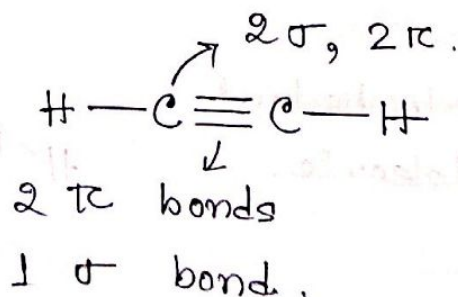 2σ, 2π.
H—C≡C—H
2 π bonds
1 σ bond.